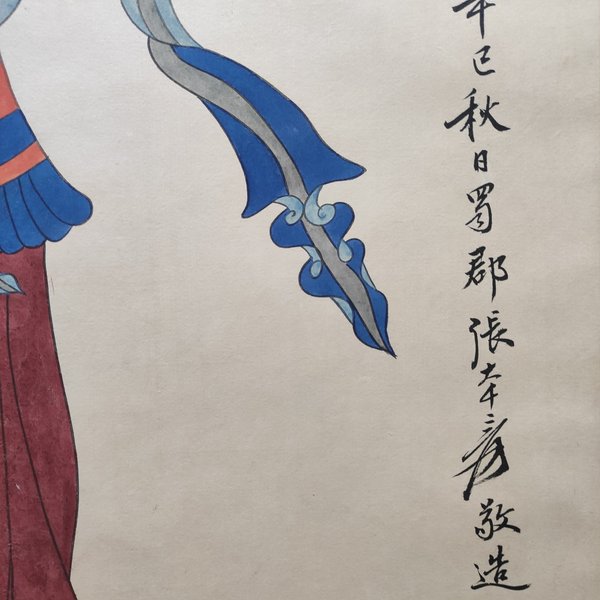 辛巳秋日蜀郡張大千爰敬造